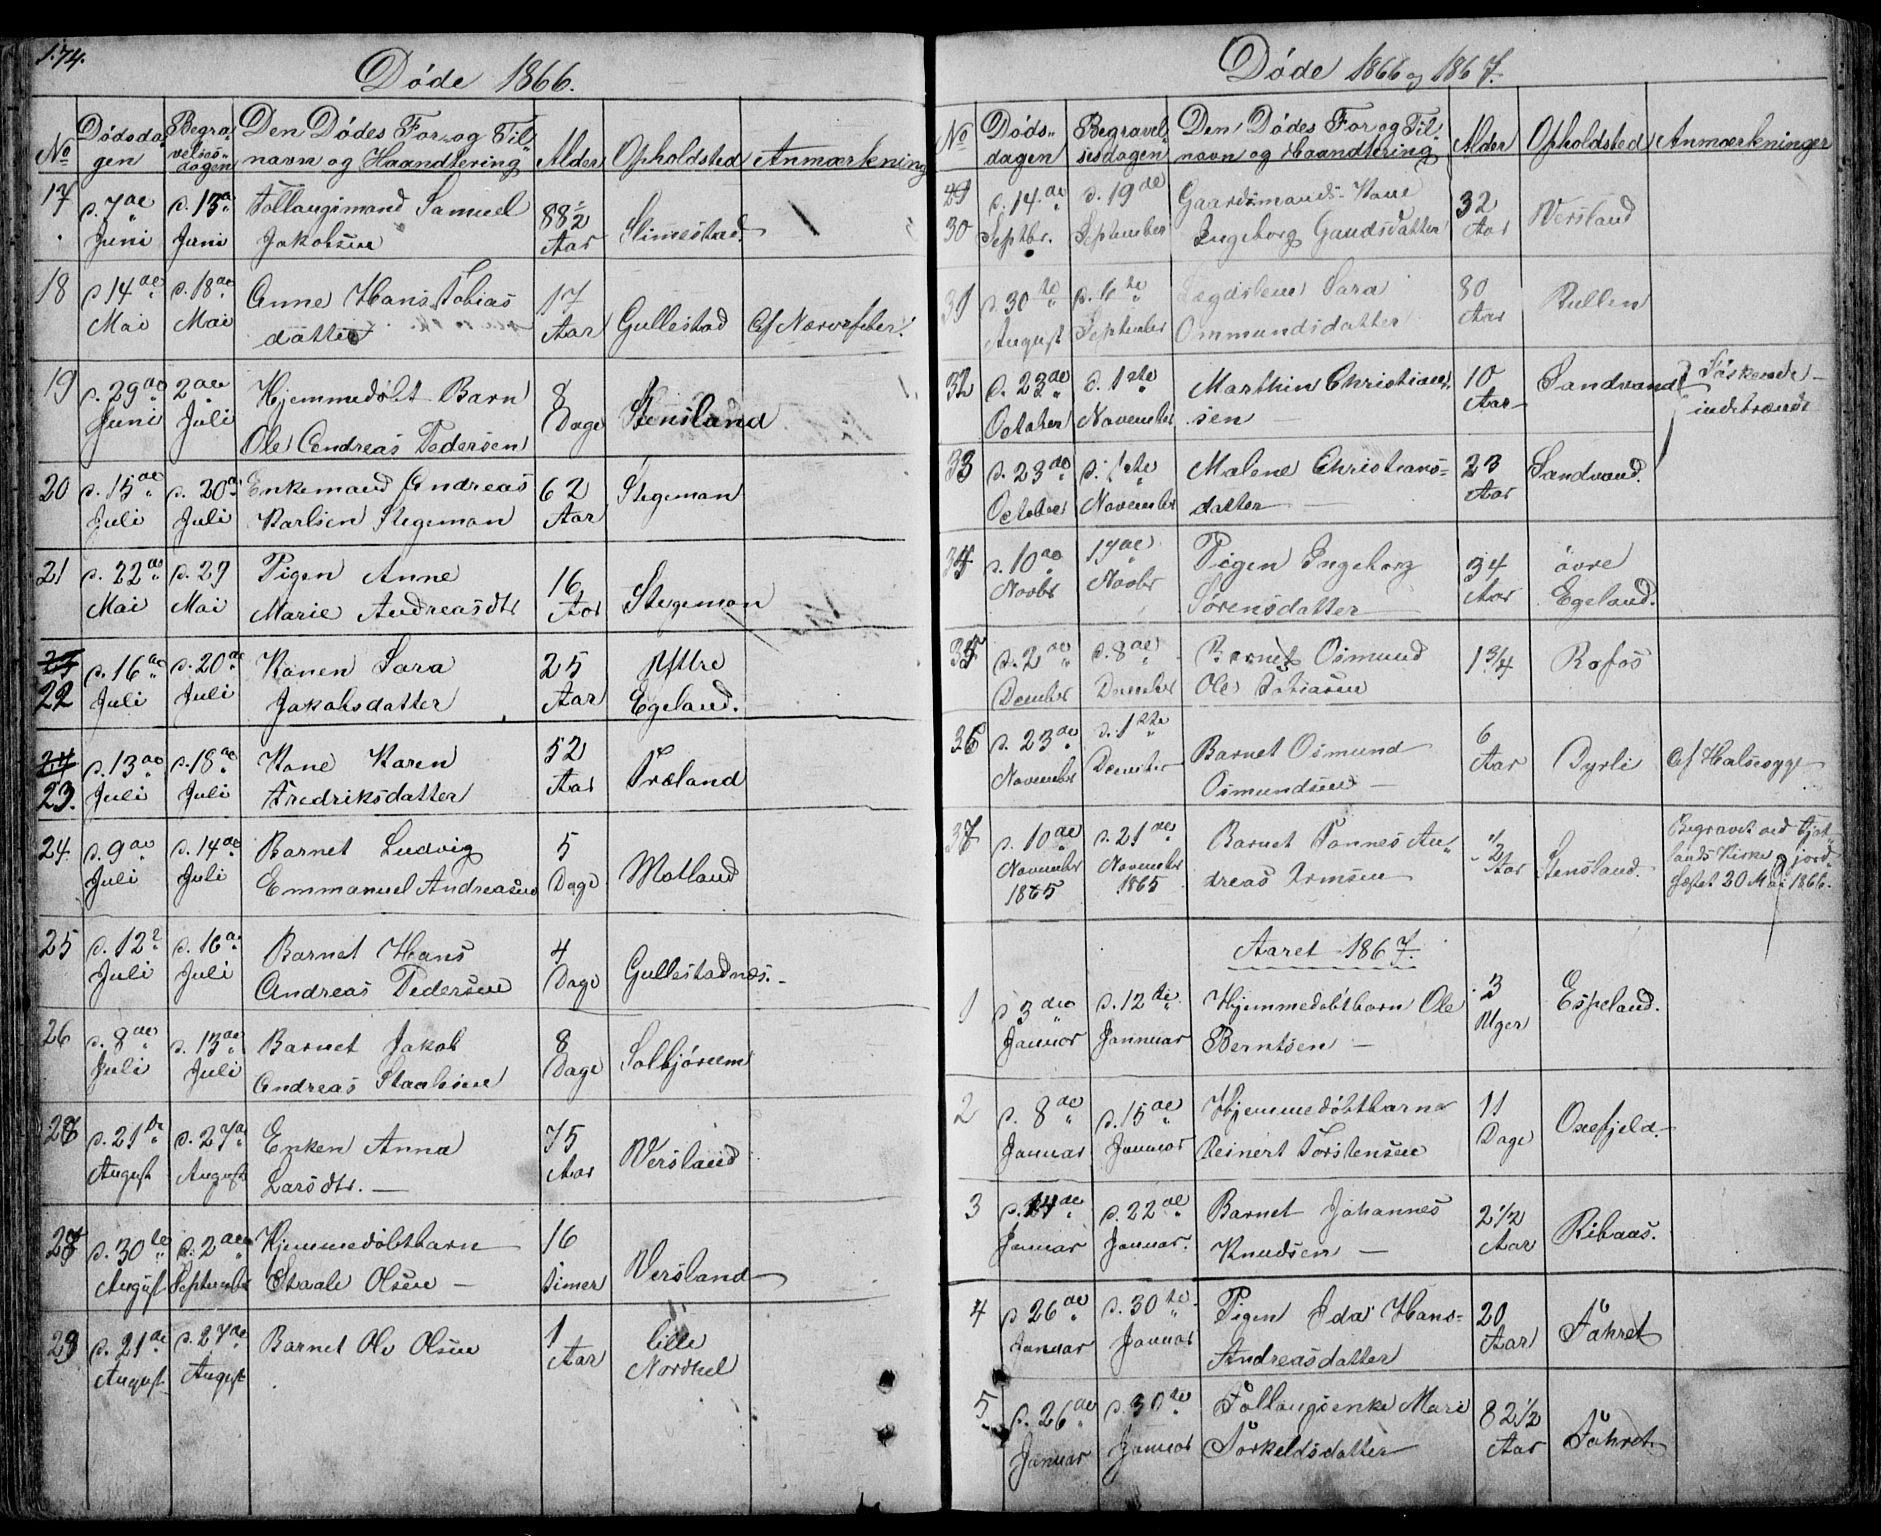 174.
Døde 1866.
No Dødsdagen Begravelsesdagen Den Dødes For og Tilnavn og Haandtering Alder Opholdsted Anmærkning
17 d. 7de Juni d. 15de Juni Føllaugsmand Samuel Jakobsen 88 1/2 Aar Slimestad.
18 d. 14de Mai d. 18de Mai Anne Hans Tobiasdatter 17 Aar Gullestad Af Nervefeber.
19 d. 29de Juni 2den Juli Hjemmedøbt Barn Ole Andreas Pedersen 8 Dage Stensland
20 d. 15de Juli d. 20de Juli Enkemand Andreas Karlsen Stegeman 62 Aar Stegeman
21 d. 22de Mai d. 29 Mai Pigen Anne Marie Andreasdtr 16 Aar Stegeman
22 d. 16de Juli d. 20de Juli Konen Sara Jakobsdatter 25 Aar Yttre Egeland.
23. d. 13de Juli d. 18de Juli Kone Karen Fredriksdatter 52 Aar Træland
24. d. 9de Juli d. 14de Juli Barnet Ludvig Emmanuel Andreasen 5 Dage Motland
25 d. 12te Juli d. 16de Juli Barnet Hans Andreas Pedersen 4 Dage Gullestadnæs.
26 d. 8de Juli d. 13de Juli Barnet Jakob Andreas Staalesen 8 Dage Solbjørnem
27 d. 21de August d. 27de August Enken Anna Larsdtr. 75 Aar Versland
28 d. 30te August d. 2den September Hjemmedøbtbarn Staale Olsen 16 Timer Versland
29 d. 21de August d. 27de August Barnet Ole Olsen 1 Aar Lille Nordhel
Døde 1866 og 1867.
No Dødsdagen Begravelsesdagen Den Dødes For og Tilnavn og Haandtering Alder Opholdsted Anmærkninger
30 d. 14de Septbr. d. 19de September Gaardmands Kone Ingeborg Gaudsdatter 32 Aar Versland
31 d. 30te August d. 6te September Lægdslem Sara Ommundsdatter 80 Aar Rullen
32 d. 23de October d. 1ste November Marthin Christiansen 10 Aar Sandvand Søskende indebrændt
33 d. 23de October d. 1ste November Malene Christiansdatter 23 Aar Sandvand.
34 d. 10de Novbr 17de Novbr Pigen Ingeborg Sørensdatter 34 Aar øvre Egeland.
35 d. 2de December d. 8de December Barnet Osmund Ole Tobiasen 1 3/4 Rofos
36 d. 23de November d. 1ste December Barnet Osmund Osmundsen 6 Aar Dyrli Af Halssyge
37 d. 10de November 1865 d. 21de November 1865 Barnet Tønnes Andreas 1/2 Aar Stensland. Begravet ved lands Kirke og jordfæstet 20 Mai 1866.
Aaret 1867.
1 d. 3die Januar d. 12te Jannuar Hjemmedøbtbarn Ole Berntsen 3 Uger Espeland.
2 d. 8de Januar d. 15de Januar Hjemmedøbtbarn Reinert Torstensen 11 Dage Oxefjeld.
3 d. 14de Januar d. 22de Januar. Barnet Johannes Knudsen 2 1/2 Aar Ribaas.
4 d. 26de Januar d. 30te Januar Pigen Ida Hans-Andreasdatter 20 Aar Føhret
5. d. 26de Januar d. 30te Januar Føllaugsenke Mari Torkeldsdatter 82 1/2 Aar Føhret